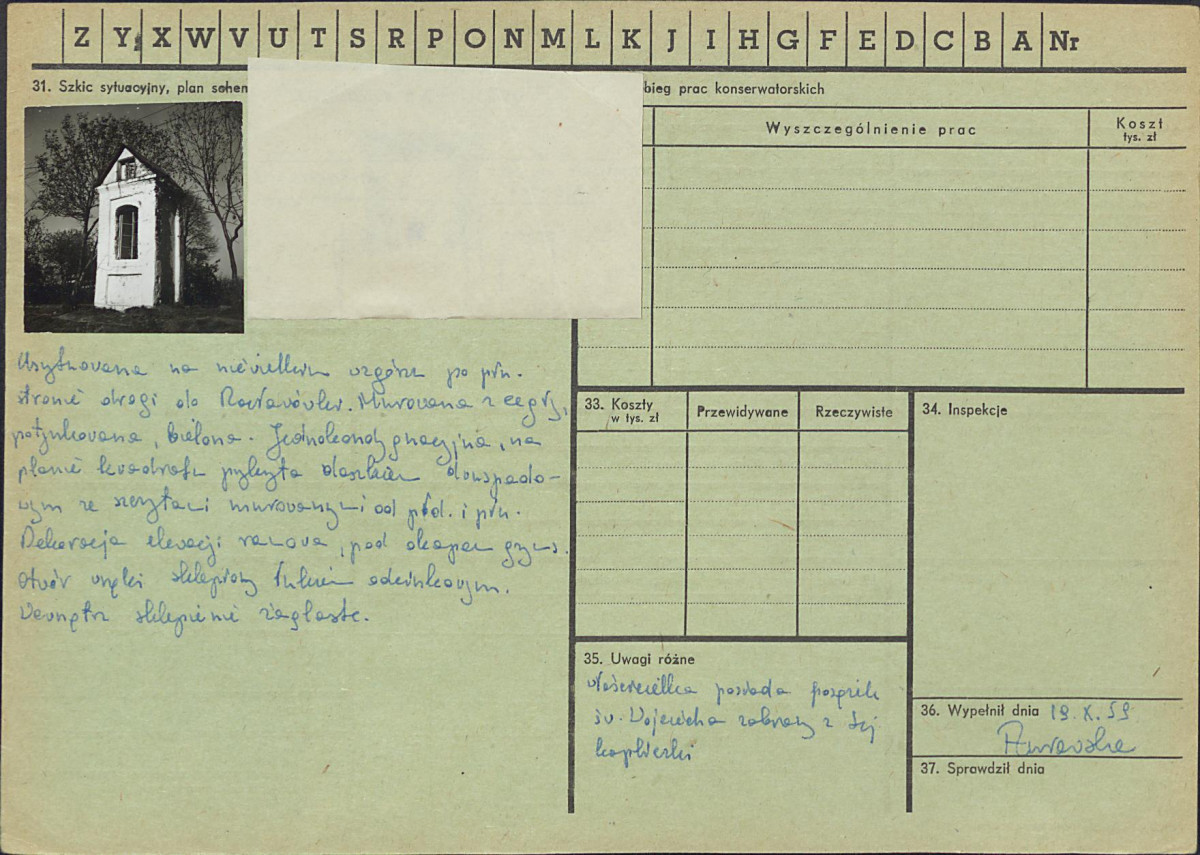 Z Y X W V U T S R P O N M L K J I H G F E D C B A Nr
31. Szkic sytuacyjny, plan schem
bieg prac konserwatorskich
Wyszczególnienie prac
Koszt
tys. zł
Usytuowana na niewielkim wzgórzu po płn.
stronie drogi do Racławówki. Murowana z cegły,
potynkowana, bielona. Jednokondygnacyjna, na
planie kwadratu przykryta daszkiem dwuspado-
wym ze szczytami murowanymi od płd. i płn.
Dekoracja elewacji ramowa, pod okapem gzyms.
Otwór wnęki sklepiony łukiem odcinkowym.
Wewnątrz sklepienie żaglaste.
33. Koszty
w tys. zł
Przewidywane
Rzeczywiste
34. Inspekcje
35. Uwagi różne
Właścicielka posiada posążek
św. Wojciecha zabrany z tej
kapliczki
36. Wypełnił dnia 19.X.59
37. Sprawdził dnia